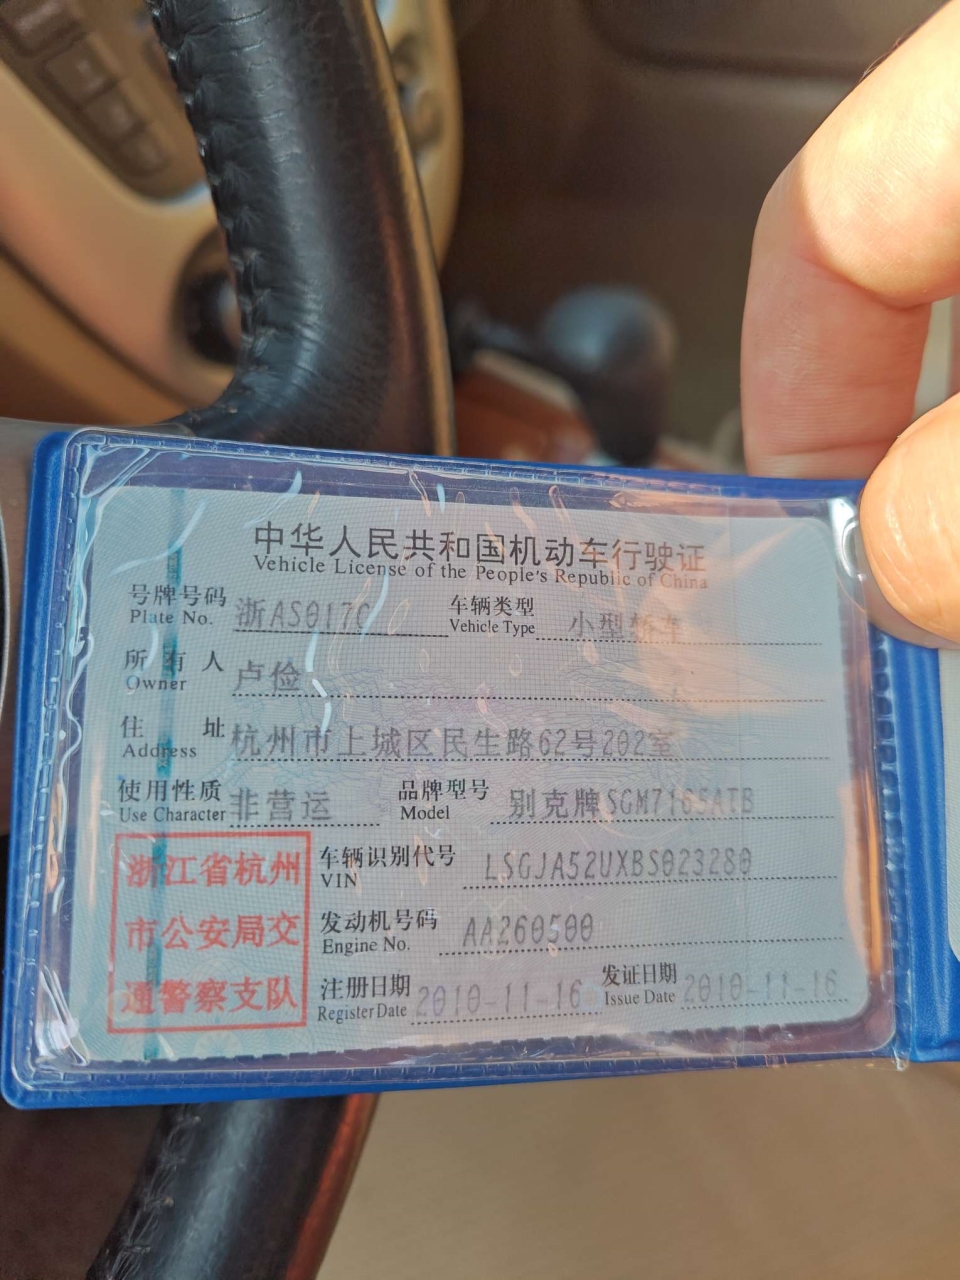 中华人民共和国机动车行驶证
Vehicle License of the People's Republic of China
号牌号码 浙AS017C 车辆类型 小型轿车
Plate No. Vehicle Type
所有人 卢俭
Owner
住址 杭州市上城区民生路62号202室
Address
使用性质 非营运 品牌型号 别克牌SGM7165ATB
Use Character Model
浙江省杭州
市公安局交
通警察支队
车辆识别代号 LSGJA52UXBS023280
VIN
发动机号码 AA260500
Engine No.
注册日期 2010-11-16 发证日期 2010-11-16
Register Date Issue Date